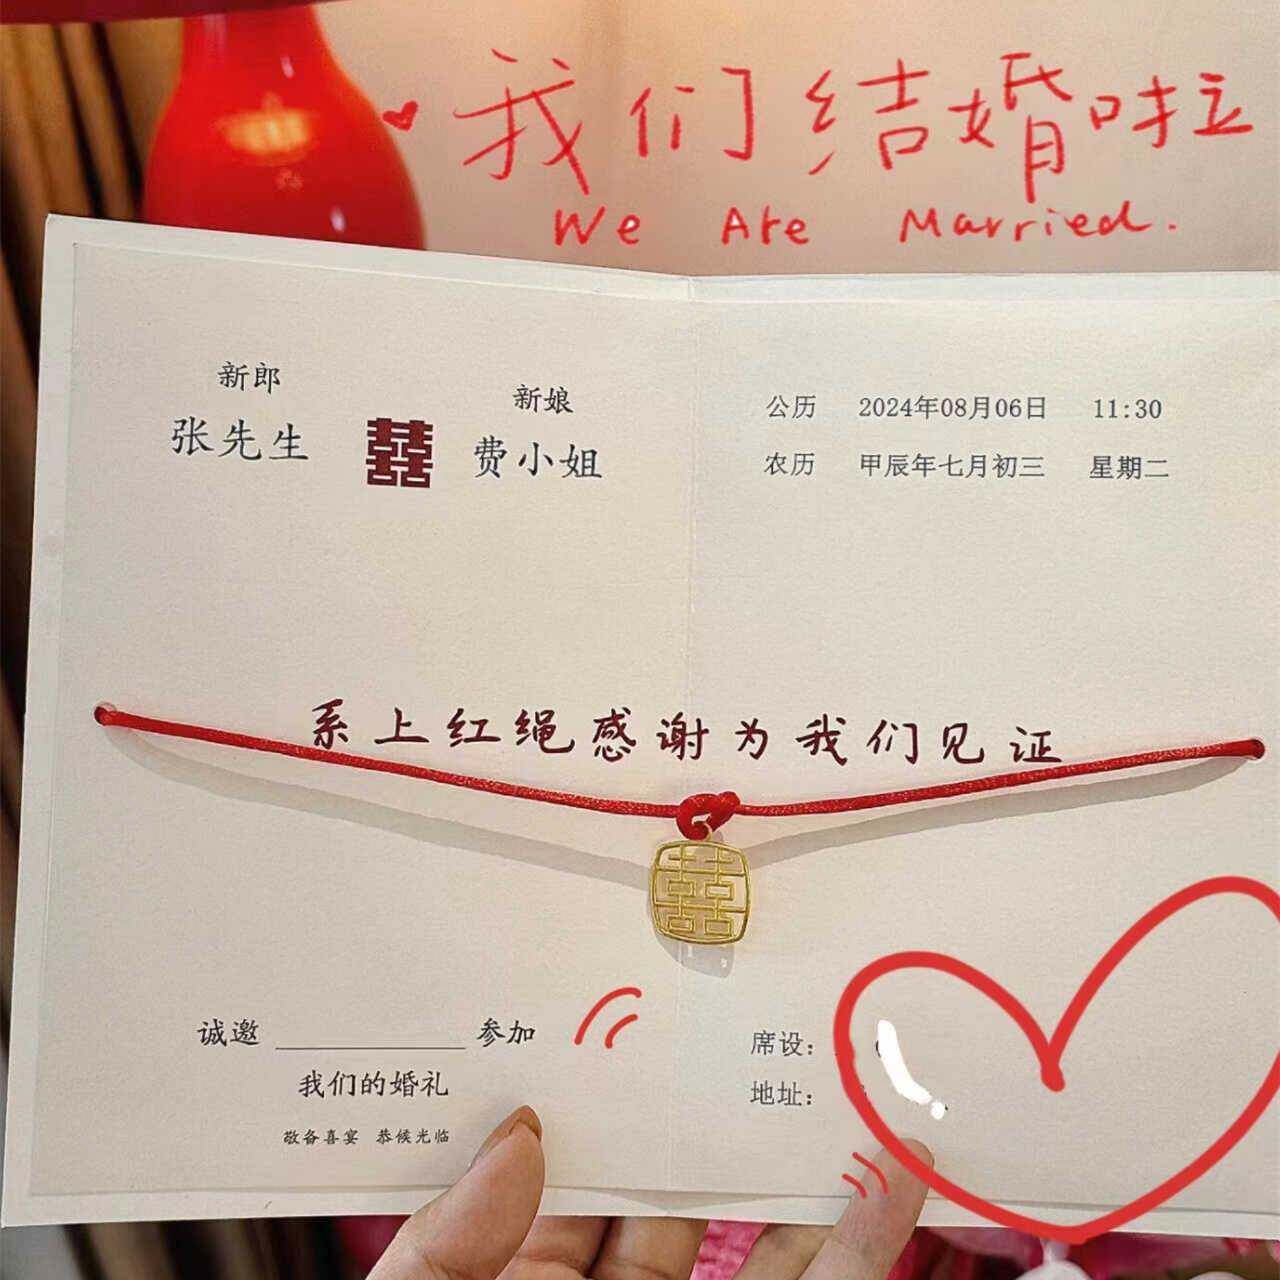 我们结婚啦
We Are Married.
新郎
张先生
囍
新娘
费小姐
公历 2024年08月06日 11:30
农历 甲辰年七月初三 星期二
系上红绳感谢为我们见证
囍
诚邀 参加
我们的婚礼
敬备喜宴 恭候光临
席设：
地址：